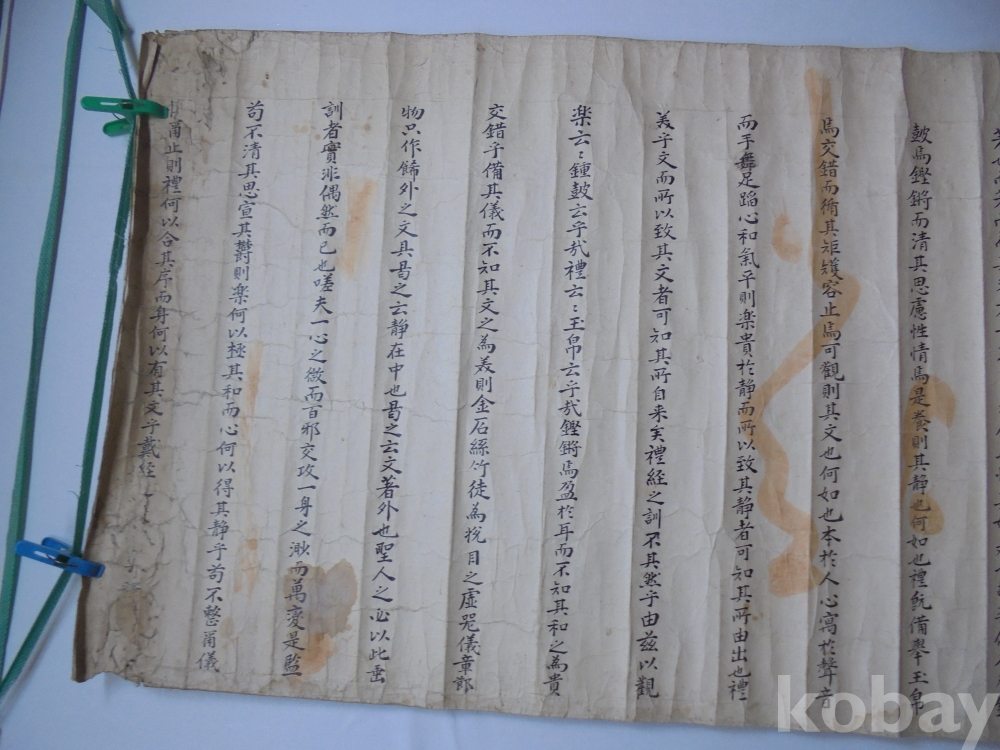 皷焉鏗鏘而清其思慮性情焉是養則其静也何如也禮既備擧玉帛
焉交錯而循其矩矱容止焉可觀則其文也何如也本於人心寓於聲音
而手舞足蹈心和氣平則楽貴於静而所以致其静者可知其所由出也禮
義乎文而所以致其文者可知其所自来矣禮経之訓不其然乎由玆以觀
楽云〻鍾皷云乎㢤禮云〻玉帛云乎㢤鏗鏘焉盈於耳而不知其和之為貴
交錯乎備其儀而不知其文之為羙則金石絲竹徒為悅目之虛器儀章
物只作餙外之文具曷之云静在中也曷之云文著外也聖人之必以此垂
訓者實非偶然而已也嗟夫一心之微而百邪交攻一身之渺而萬變是
苟不清其思宣其欝則楽何以極其和而心何以得其静乎苟不整甭儀
甭止則禮何以合其序而身何以有其文乎戴経
kobay